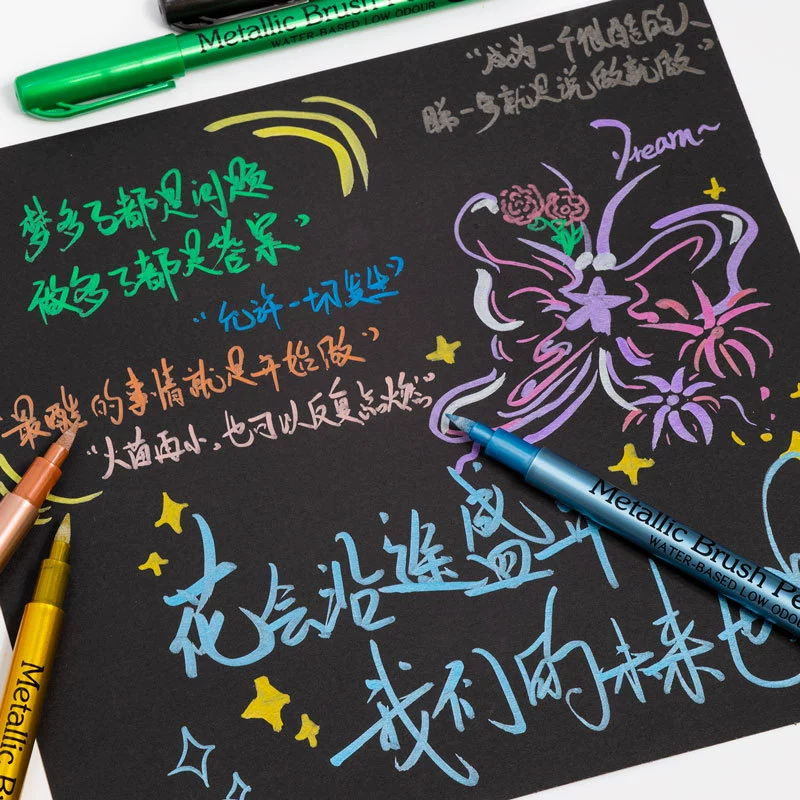 Metallic Brush Pe
WATER-BASED LOW ODOUR
"成为一个很酷的人
第一步就是说做就做"
Dream~
梦多了都是问题
做多了都是答案"
"允许一切发生"
"最酷的事情就是开始做"
"火苗再小,也可以反复点燃"
花会沿途盛开
我们的未来也
Metallic Brush Pe
WATER-BASED LOW ODOU
Metallic Brus